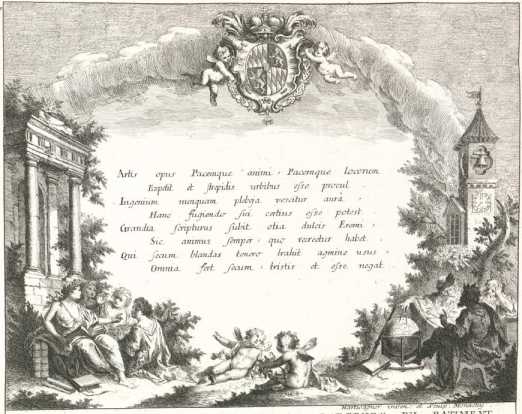 Artis opus Pacemque animi Pacemque locorum
Expetit et strepidis urbibus esse procul.
Ingenium nunquam plebeja vescitur aura,
Hanc fugiendo sui certius esse potest.
Grandia scripturus subit otia dulcis Eremi.
Sic animus semper quo recreetur habet.
Qui secum blandas tenero trahit agmine usus
Omnia fert secum tristis et esse negat.
inven. et Sculp. Monachij
DU BATIMENT